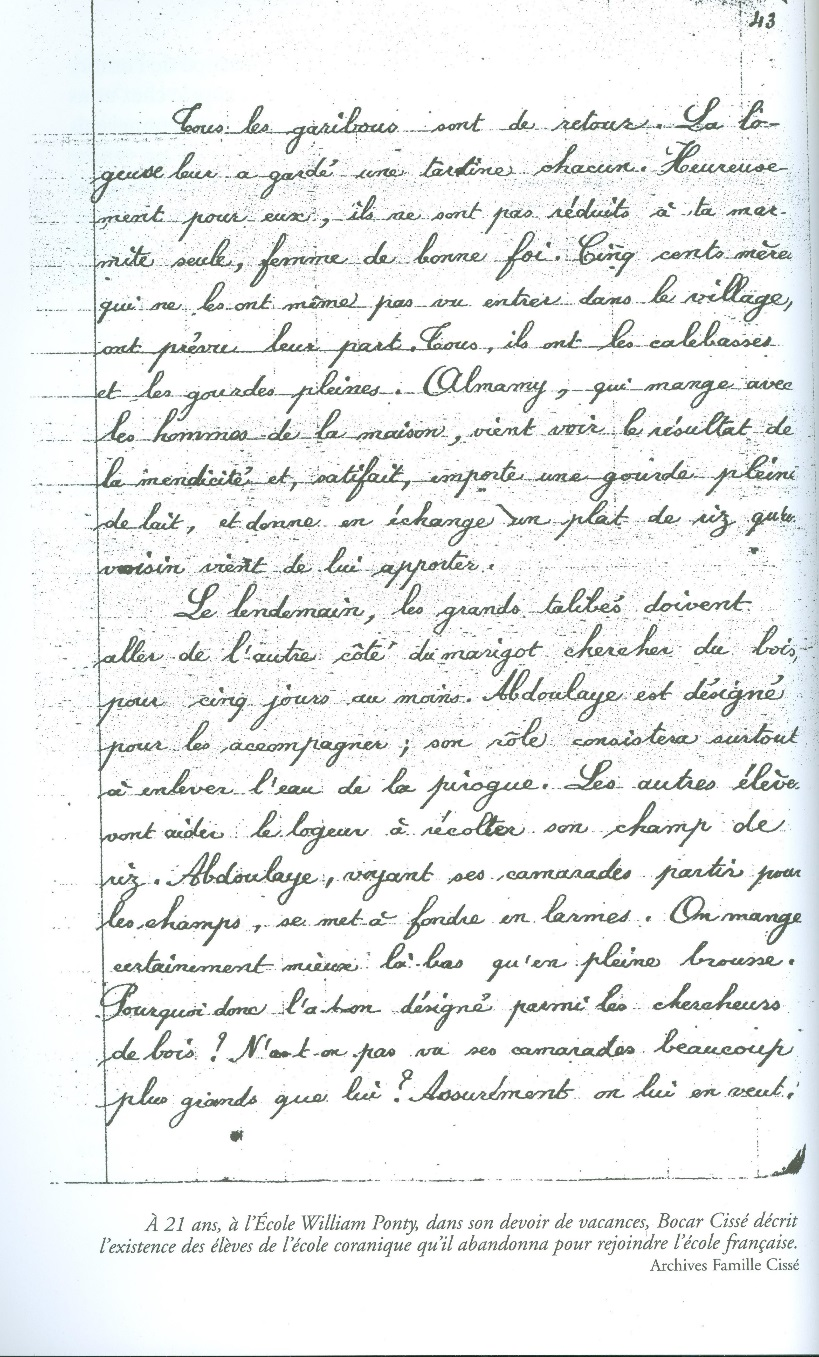 43
Tous les garibous sont de retour. La lo-
geuse leur a gardé une tartine chacun. Heureuse-
ment pour eux, ils ne sont pas réduits à ta mar-
mite seule, femme de bonne foi. Cinq cents mère
qui ne les ont même pas vu entrer dans le village,
ont prévu leur part. Tous, ils ont les calebasses
et les gourdes pleines. Almamy, qui mange avec
les hommes de la maison, vient voir le résultat de
la mendicité et, satifait, emporte une gourde pleine
de lait, et donne en échange un plat de riz qu'un
voisin vient de lui apporter.
Le lendemain, les grands talibés doivent
aller de l'autre côté du marigot chercher du bois,
pour cinq jours au moins. Abdoulaye est désigné
pour les accompagner ; son rôle consistera surtout
à enlever l'eau de la pirogue. Les autres élève
vont aider le logeur à récolter son champ de
riz. Abdoulaye, voyant ses camarades partir pour
les champs, se met à fondre en larmes. On mange
certainement mieux là-bas qu'en pleine brousse.
Pourquoi donc l'a-t-on désigné parmi les chercheurs
de bois ? N'a-t-on pas vu ses camarades beaucoup
plus grands que lui ? Assurément on lui en veut.
À 21 ans, à l'École William Ponty, dans son devoir de vacances, Bocar Cissé décrit
l'existence des élèves de l'école coranique qu'il abandonna pour rejoindre l'école française.
Archives Famille Cissé